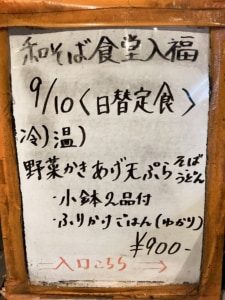 和そば食堂入福
9/10〈日替定食〉
冷)温)
野菜かきあげ天ぷらそばうどん
・小鉢2品付
・ふりかけごはん(ゆかり)
¥900-
入口こちら→